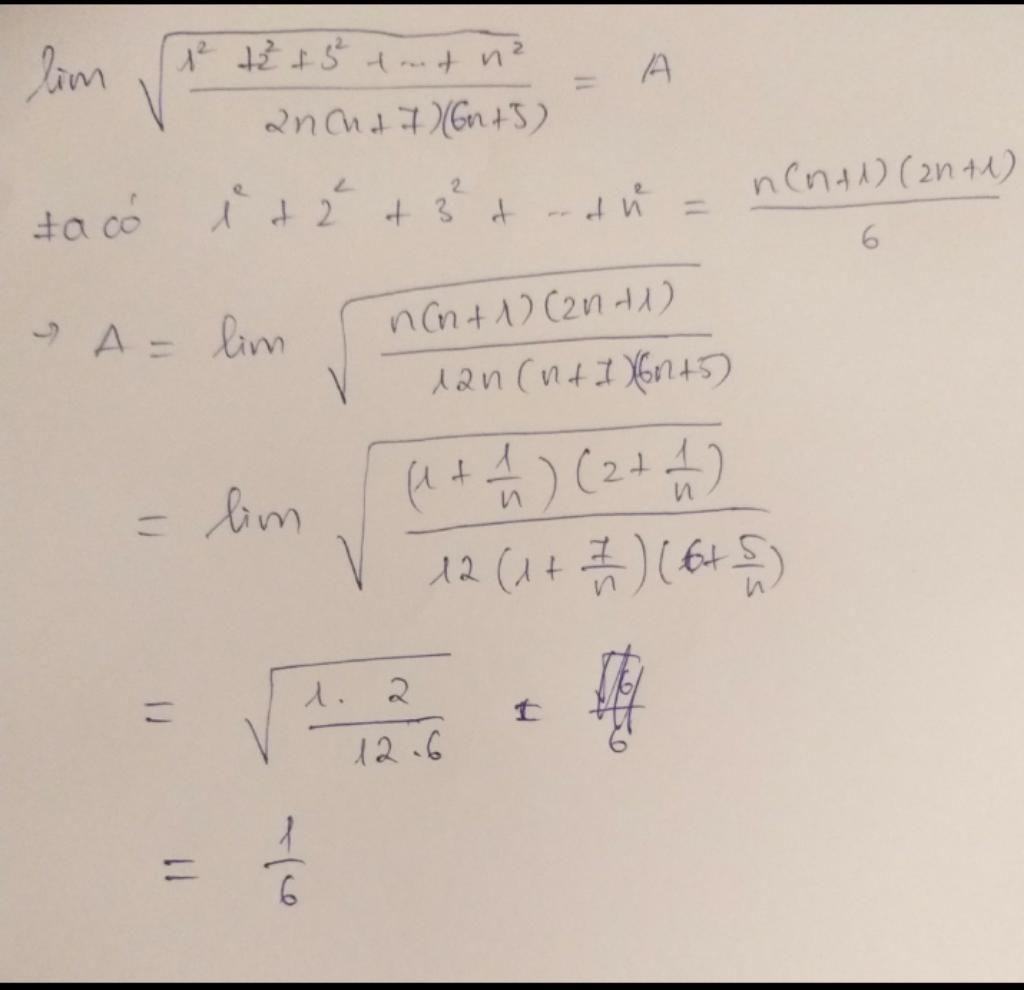 lim √((1² + 2² + 3² + ... + n²)/(2n(n+7)(6n+5))) = A
ta có 1² + 2² + 3² + ... + n² = (n(n+1)(2n+1))/6
→ A = lim √((n(n+1)(2n+1))/(12n(n+7)(6n+5)))
= lim √(((1 + 1/n)(2 + 1/n))/(12(1 + 7/n)(6 + 5/n)))
= √((1. 2)/(12.6)) =
= 1/6